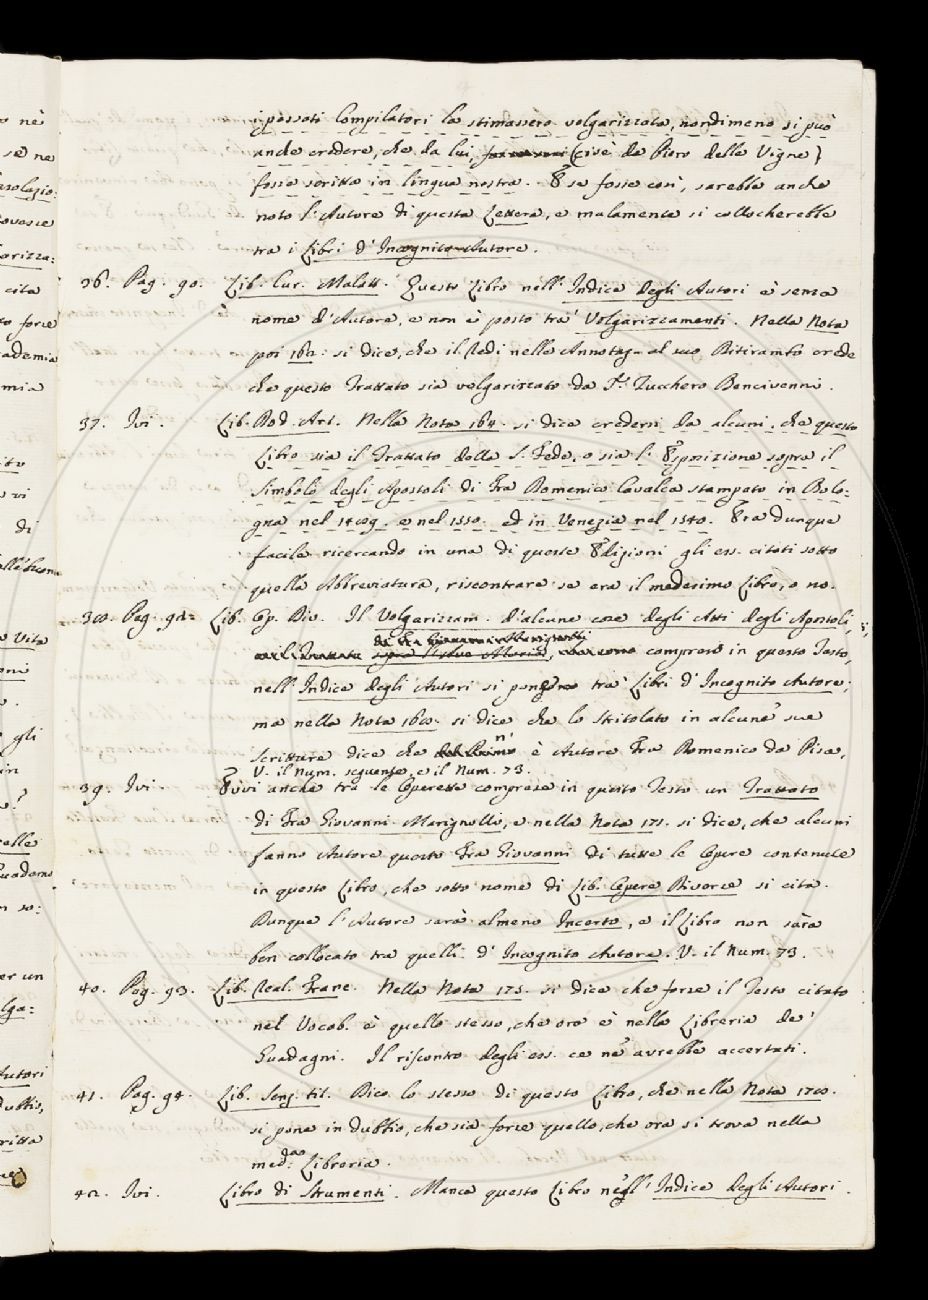 i passati Compilatori la stimassero volgarizzata, nondimeno si può
anche credere, che da lui, (cioè da Piero delle Vigne)
fosse scritta in lingua nostra. E se fosse così, sarebbe anche
noto l'Autore di questa Lettera, e malamente si collocherebbe
tra i Libri d'Incognito Autore.
36. Pag. 90. Lib. Cur. Malatt. Questo Libro nell'Indice degli Autori è senza
nome d'Autore, e non è posto tra' Volgarizzamenti. Nella Nota
poi 162: si dice, che il Redi nelle Annotaz. al suo Ditirambo crede
che questo Trattato sia volgarizzato da Sr. Zucchero Bencivenni.
37. Ivi. Lib. Pod. Art. Nella Nota 164. si dice credersi da alcuni, che questo
Libro sia il Trattato della S. Fede, o sia l'Esposizione sopra il
Simbolo degli Apostoli di Fra Domenico Cavalca stampato in Bolo:
gna nel 1489. e nel 1550. ed in Venezia nel 1540. Era dunque
facile ricercando in una di queste Edizioni gli es. citati sotto
quella Abbreviatura, riscontrare se era il medesimo Libro, o no.
38. Pag. 92. Lib. Op. Div. Il Volgarizzam. d'alcune cose degli Atti degli Apostoli,
di Fra Giovanni Marignolli
compreso in questo Testo,
nell'Indice degli Autori si pone tra' Libri d'Incognito Autore;
ma nella Nota 168. si dice che lo Stritolato in alcune sue
Scritture dice che n' è Autore Fra Domenico da Pisa,
V. il Num. seguente, e il Num. 73.
39. Ivi. Evvi anche tra le Operette comprese in questo Testo un Trattato
di Fra Giovanni Marignolli, e nella Nota 171. si dice, che alcuni
fanno Autore questo Fra Giovanni di tutte le Opere contenute
in questo Libro, che sotto nome di Lib. Opere Diverse si cita.
Dunque l'Autore sarà almeno Incerto, e il Libro non sarà
ben collocato tra quelli d'Incognito Autore. V. il Num. 73.
40. Pag. 93. Lib. Real. Franc. Nella Nota 175. si dice che forse il Testo citato
nel Vocab. è quello stesso, che ora è nella Libreria de'
Guadagni. Il riscontro degli es. ce ne avrebbe accertati.
41. Pag. 94. Lib. Segr. Dico lo stesso di questo Libro, che nella Nota 178.
si pone in dubbio, che sia forse quello, che ora si trova nella
med.ma Libreria.
42. Ivi. Libro di Strumenti. Manca questo Libro negl'Indice degli Autori.